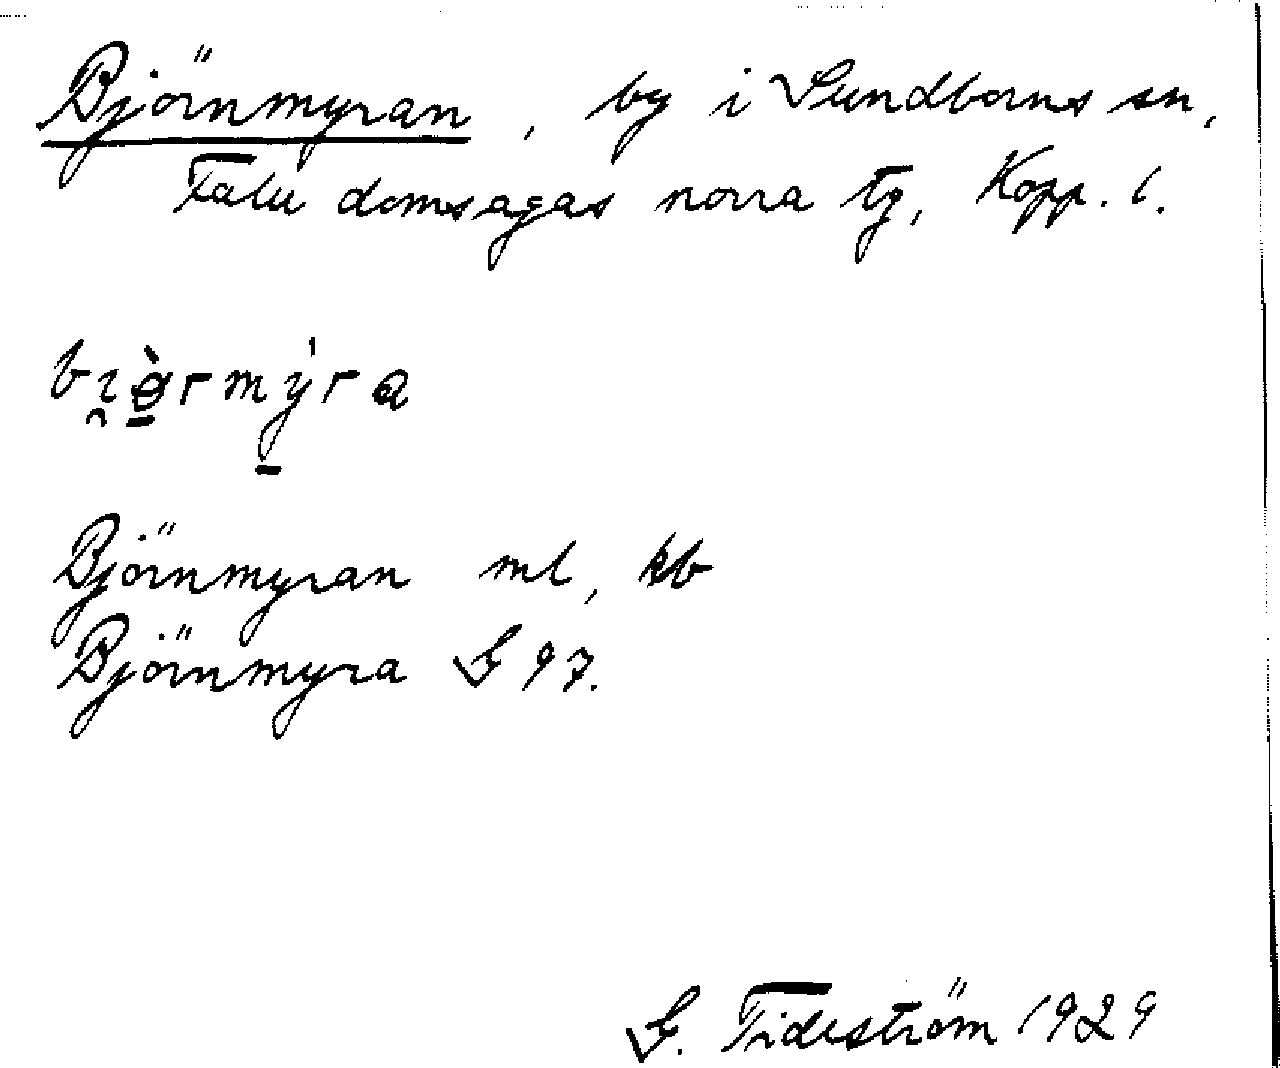 Björnmyran, by i Sundborns sn,
Falu domsagas norra tg, Kopp. l.
Björnmyran ml, kb
Björnmyra G 97.
G. Tideström 1929